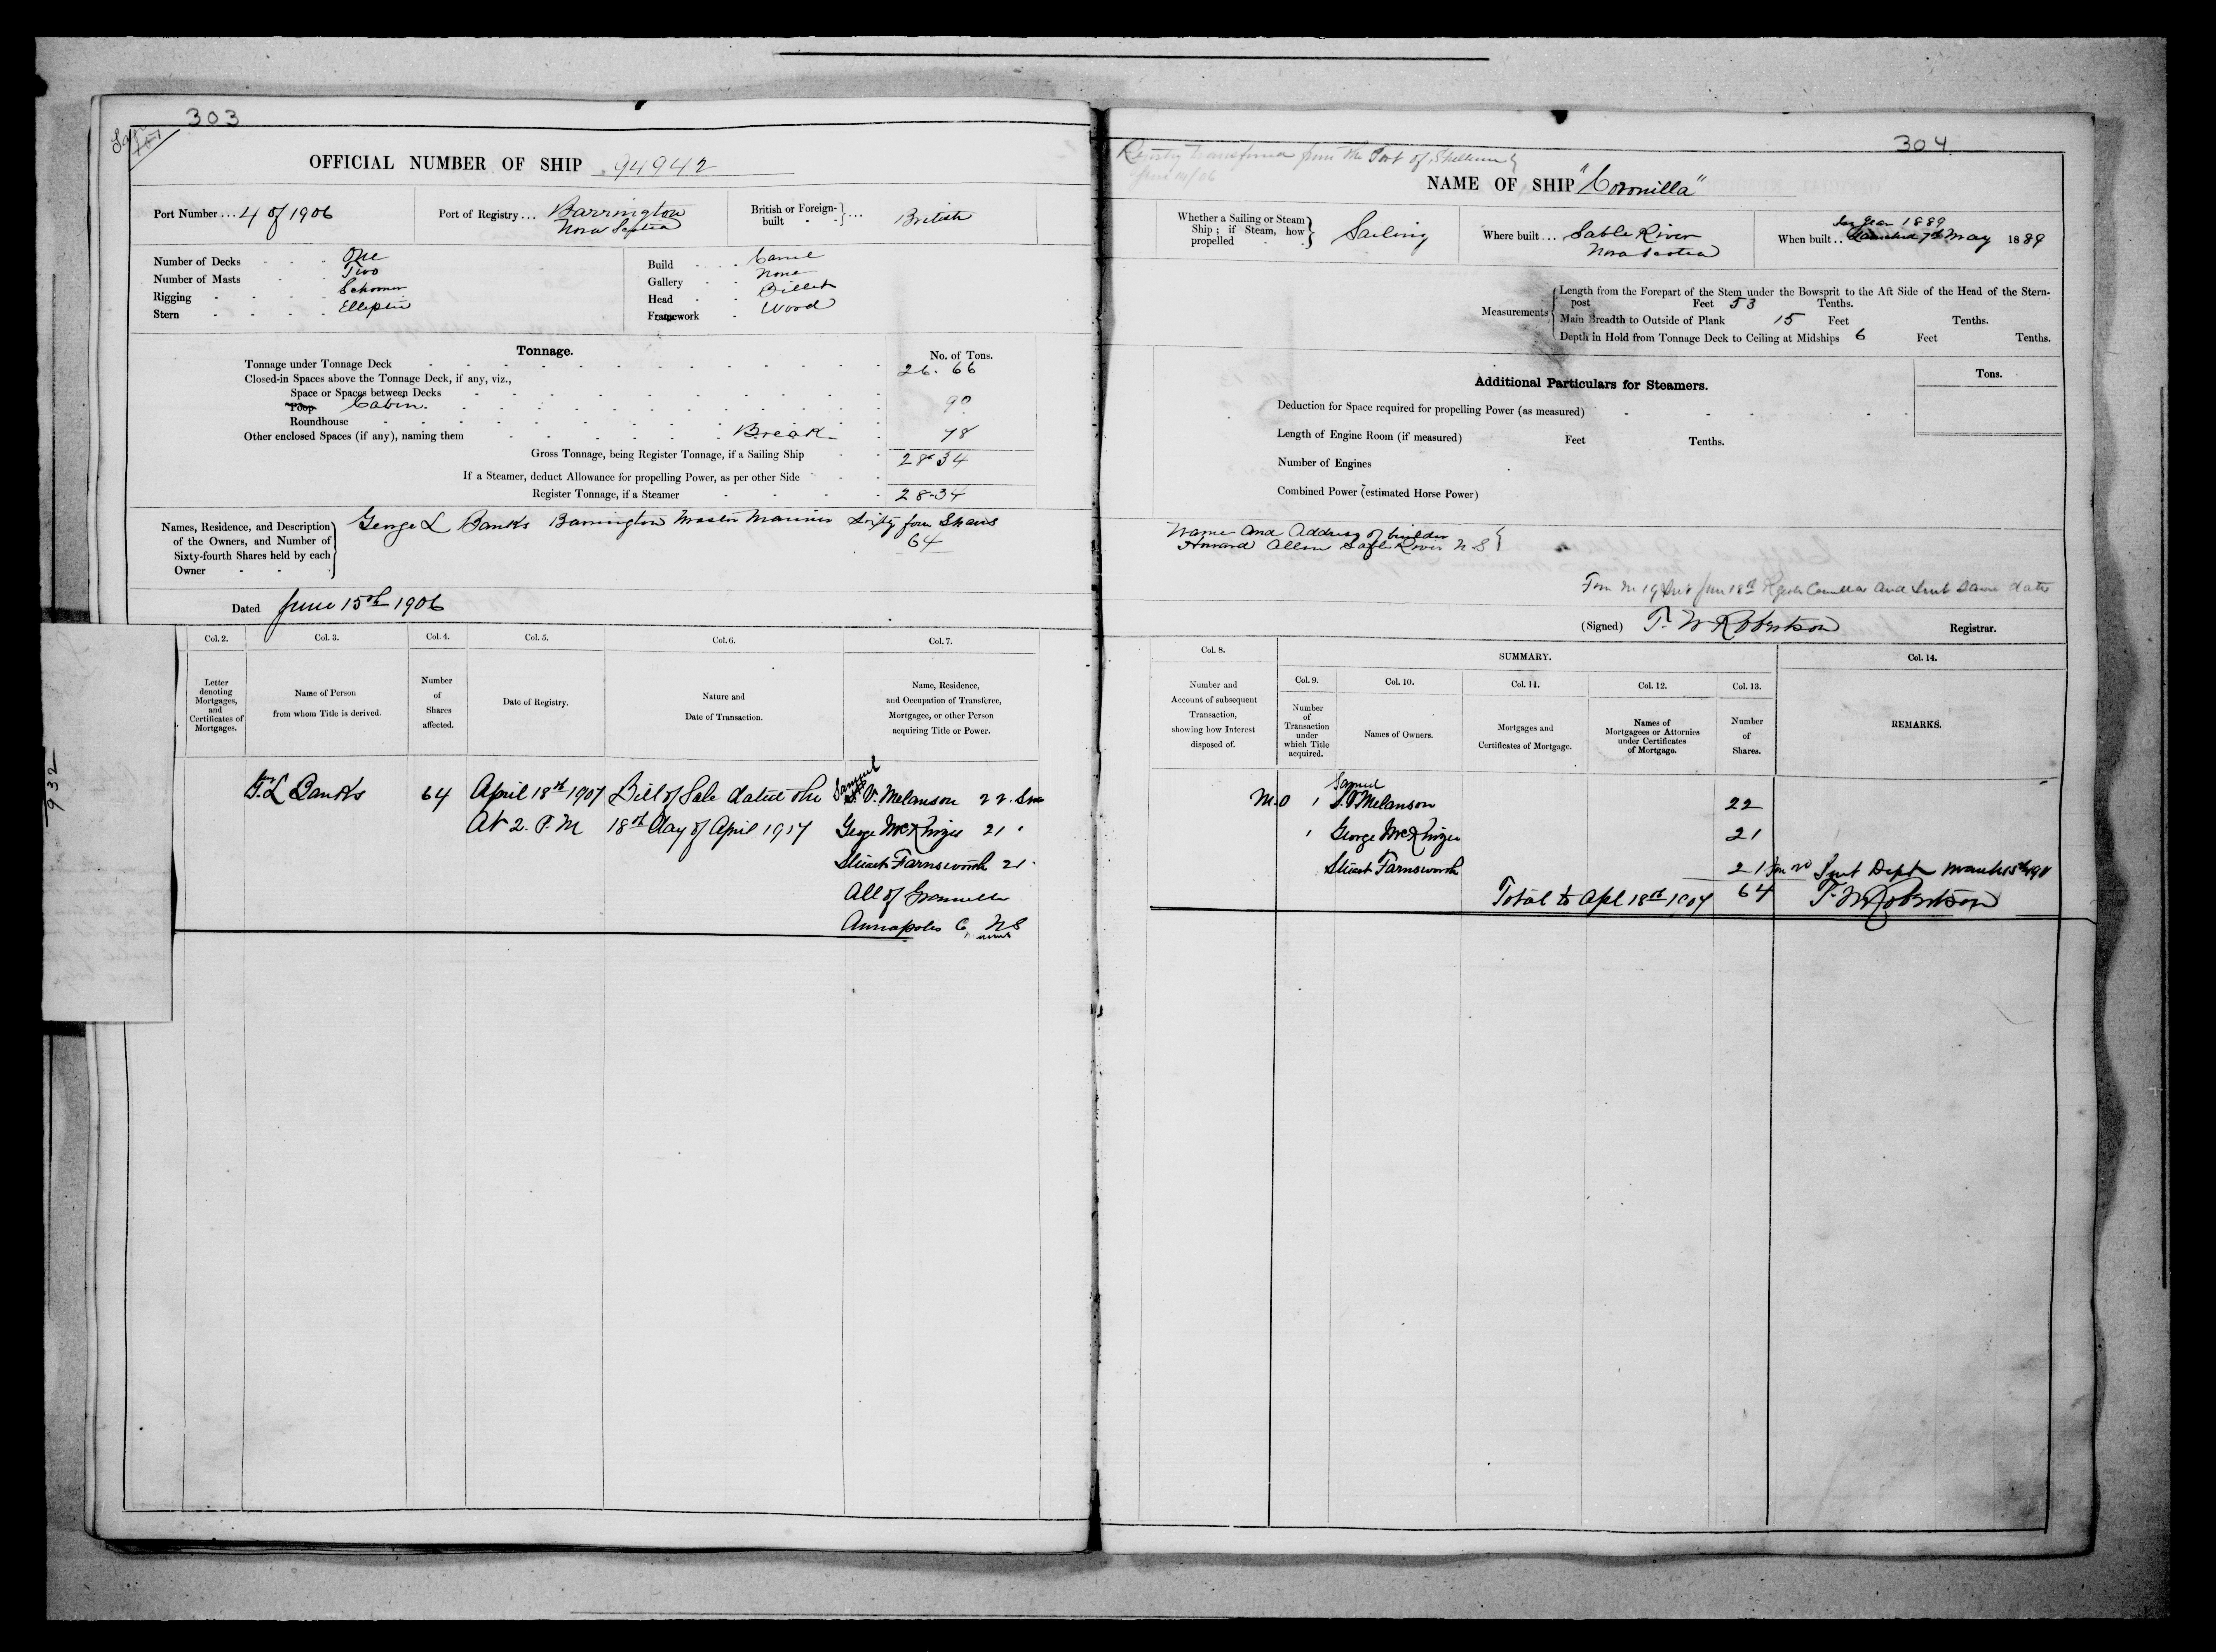 303
OFFICIAL NUMBER OF SHIP 94942
Port Number ... 4 of 1906
Port of Registry ... Barrington
Nova Scotia
British or Foreign-built } ... British
Number of Decks One
Number of Masts Two
Rigging Schooner
Stern Elliptic
Build Carvel
Gallery None
Head Billet
Framework Wood
Tonnage.
No. of Tons.
Tonnage under Tonnage Deck 26.66
Closed-in Spaces above the Tonnage Deck, if any, viz.,
Space or Spaces between Decks
Poop Cabin. 90
Roundhouse
Other enclosed Spaces (if any), naming them Break 78
Gross Tonnage, being Register Tonnage, if a Sailing Ship 28.34
If a Steamer, deduct Allowance for propelling Power, as per other Side
Register Tonnage, if a Steamer 28.34
Names, Residence, and Description
of the Owners, and Number of
Sixty-fourth Shares held by each
Owner
George L Banks Barrington Master Mariner Sixty four Shares
64
Dated June 15th 1906
Col. 2. Col. 3. Col. 4. Col. 5. Col. 6. Col. 7.
Letter denoting Mortgages, and Certificates of Mortgages.
Name of Person from whom Title is derived.
Number of Shares affected.
Date of Registry.
Nature and Date of Transaction.
Name, Residence, and Occupation of Transferee, Mortgagee, or other Person acquiring Title or Power.
932
G. L Banks 64 April 18th 1907 Bill of Sale dated the Samuel V. Melanson 22
At 2. P. M 18th Day of April 1907 George McKenzie 21 "
Stuart Farnsworth 21
All of Granville
Annapolis Co, NS
304
Registry transferred from the Port of Shelburne
June 14/06
NAME OF SHIP "Coronilla"
Whether a Sailing or Steam
Ship; if Steam, how
propelled
Sailing
Where built ... Sable River
Nova Scotia
In Year 1889
When built .. Launched 7th May 1889
Measurements
Length from the Forepart of the Stem under the Bowsprit to the Aft Side of the Head of the Stern-
post Feet 53 Tenths.
Main Breadth to Outside of Plank 15 Feet Tenths.
Depth in Hold from Tonnage Deck to Ceiling at Midships 6 Feet Tenths.
Additional Particulars for Steamers.
Tons.
Deduction for Space required for propelling Power (as measured)
Length of Engine Room (if measured) Feet Tenths.
Number of Engines
Combined Power (estimated Horse Power)
Name and Address of builder
Howard Allen Sable River N S
Form No 19 Sent June 18th and Sent Same date
(Signed) T. W Robertson Registrar.
Col. 8. SUMMARY. Col. 14.
Col. 9. Col. 10. Col. 11. Col. 12. Col. 13.
Number and Account of subsequent Transaction, showing how Interest disposed of.
Number of Transaction under which Title acquired.
Names of Owners.
Mortgages and Certificates of Mortgage.
Names of Mortgagees or Attornies under Certificates of Mortgage.
Number of Shares.
REMARKS.
Samuel
1 S. V Melanson 22
" George McKenzie 21
Stuart Farnsworth 21 Sent Dept March 15th
Total to Apl 18th 1907 64 T. W Robertson